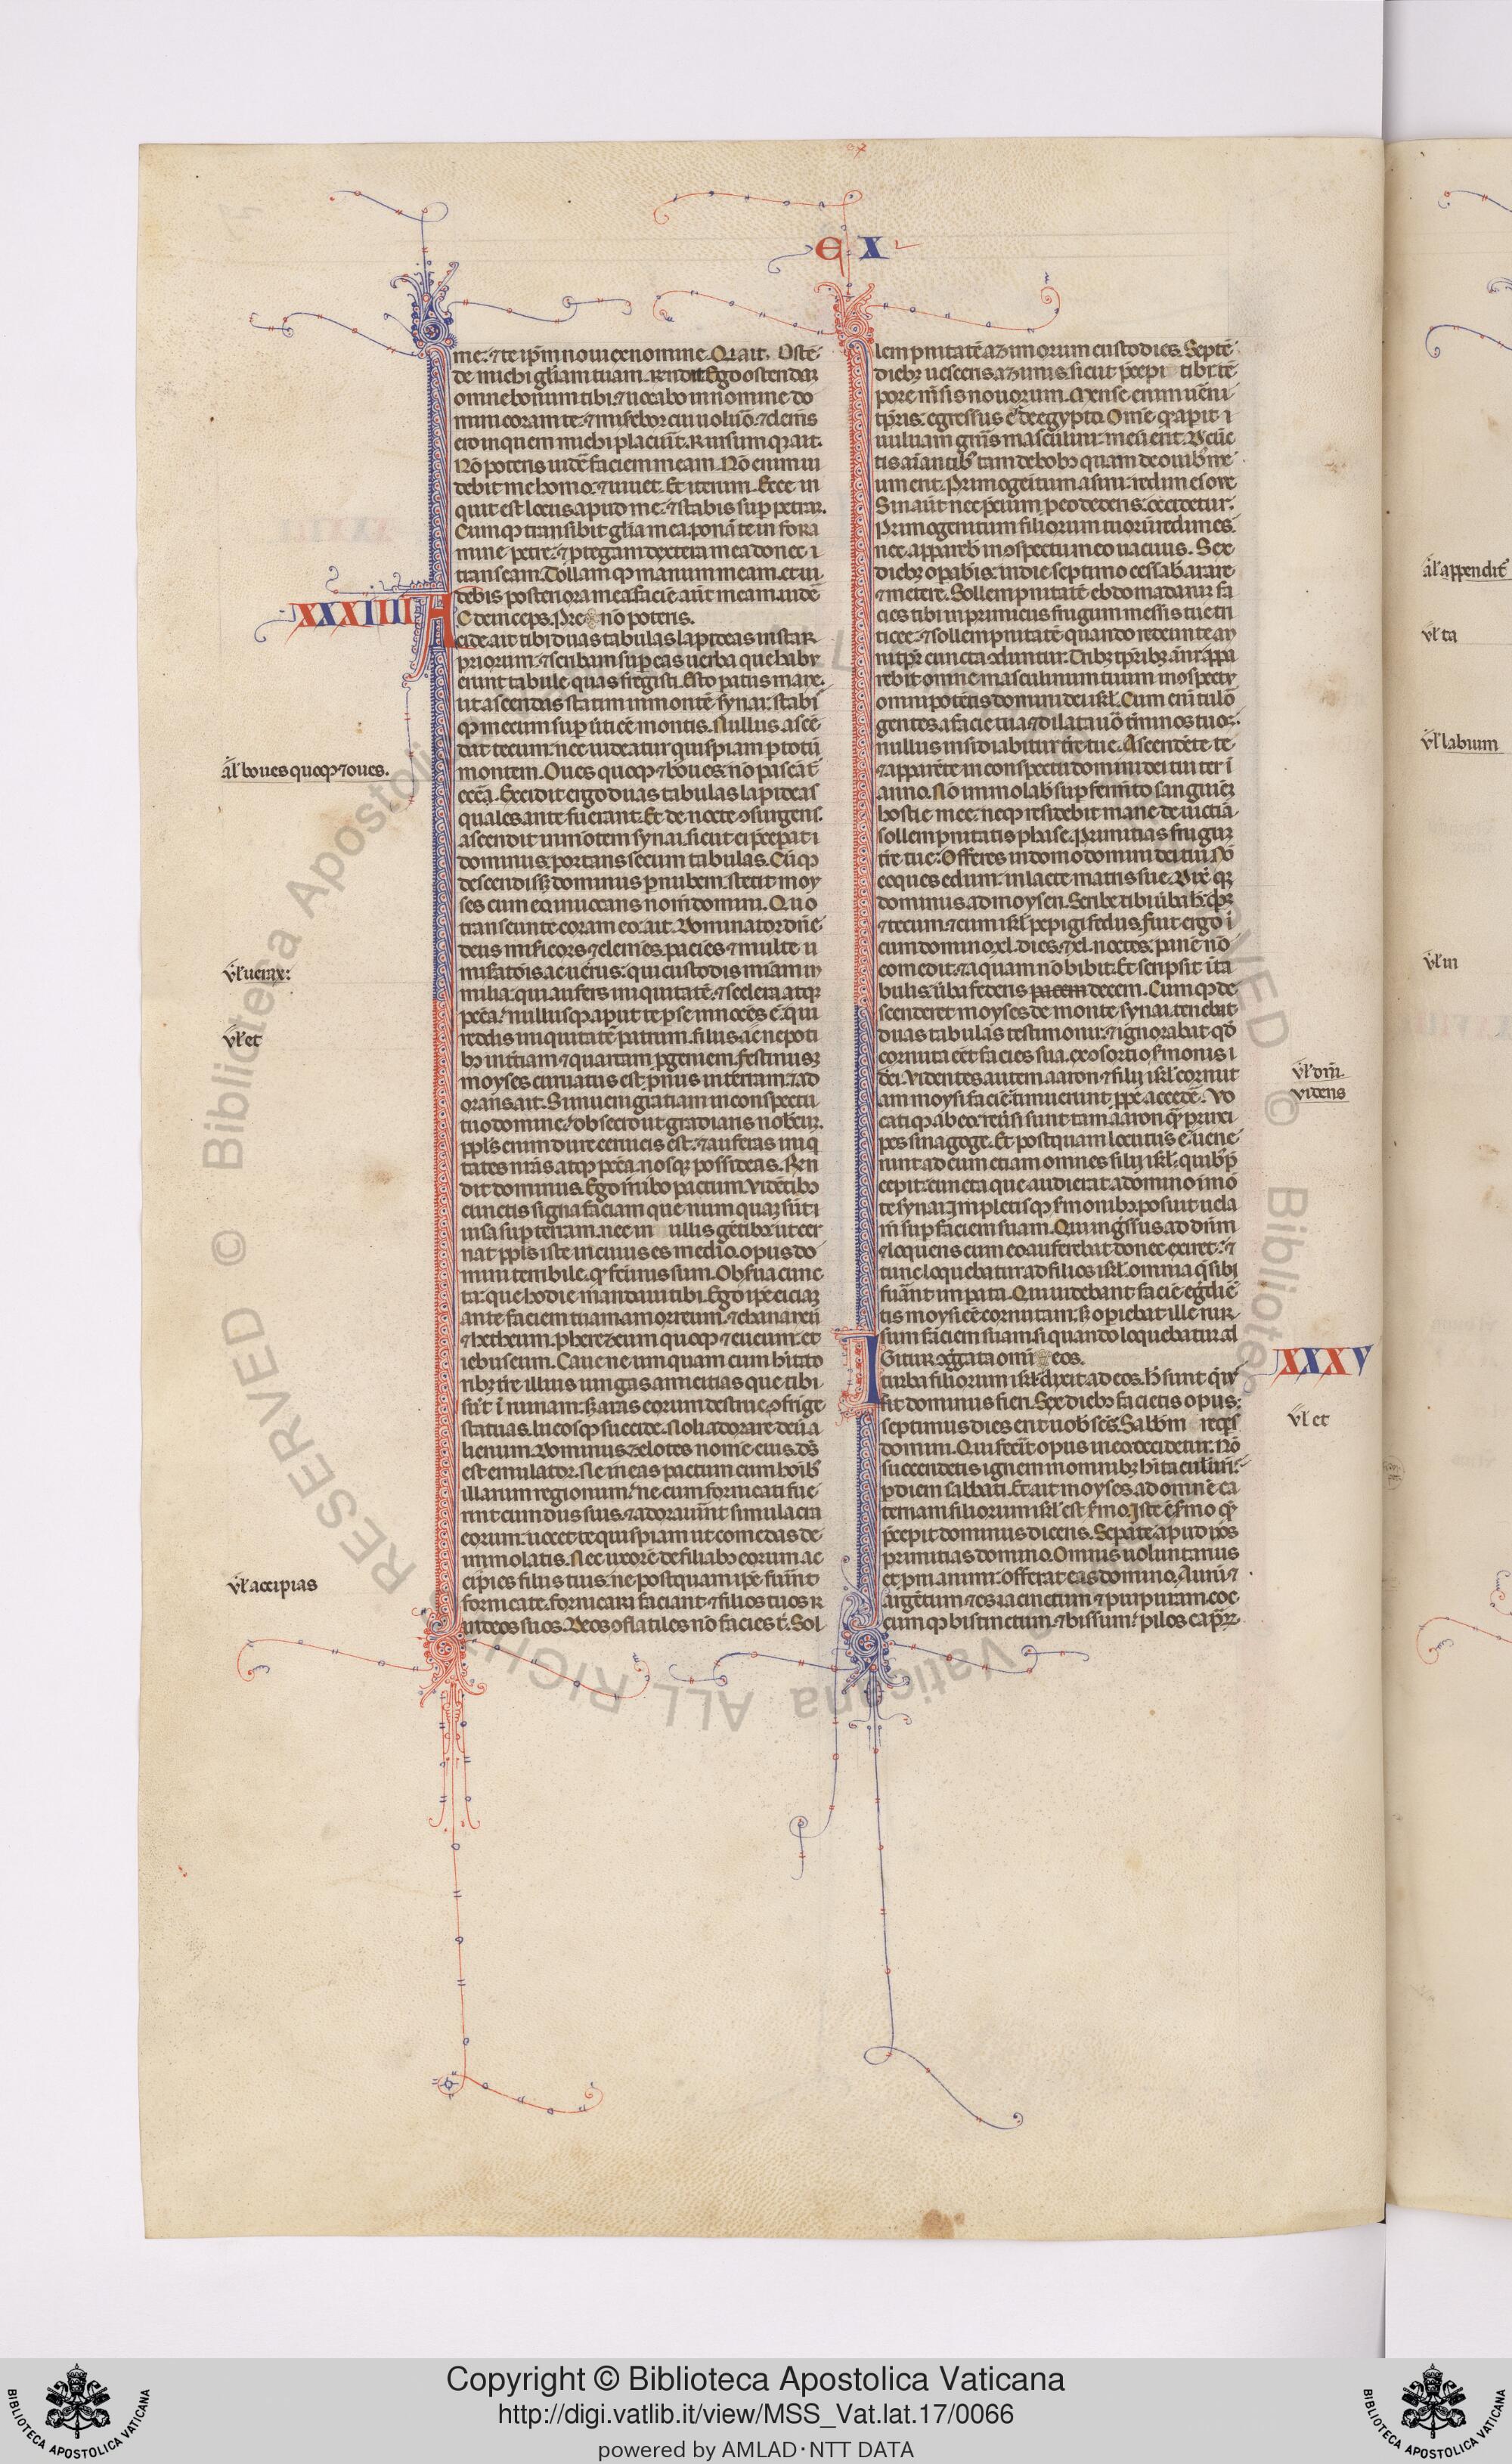 EX
me. ⁊ te ip̅m noui ex nomine. Qui ait. Oste̅
de michi gl̅iam tuam. Rn̅dit. Ego ostendam
omne bonum tibi. ⁊ uocabo in nomine do
mini coram te. ⁊ miserebor cui uoluero. ⁊ clem̅s
ero in quem michi placuerit. Rursum q̅ ait.
No̅ poteris uide̅ faciem meam. No̅ enim ui
debit me homo. ⁊ uiuet. Et iterum. Ecce in
quit est locus apud me. ⁊ stabis sup̅ petram.
Cumq̅ transibit gl̅ia mea. pona̅ te in fora
mine petre. ⁊ p̅tegam dextera mea donec
transeam. Tollamq̅ manum meam. et ui
debis posteriora mea. facie̅ aut̅ meam. uide̅
no̅ poteris.
XXXIIII
AC deinceps. Pre
cide ait tibi duas tabulas lapideas instar
priorum. ⁊ scribam sup̅ eas uerba que habu
erunt tabule quas fregisti. Esto paratus mane.
ut ascendas statim in monte̅ synai. stabis
q̅ mecum sup̅ uertice̅ montis. Nullus asce̅
dat tecum. nec uideatur quispiam p̅ totu̅
montem. Oues quoq̅ ⁊ boues. no̅ pasca̅t
al̅ boues quoq̅ ⁊ oues.
Excidit ergo duas tabulas lapideas
quales ante fuerant. Et de nocte ꝯsurgens.
ascendit in mo̅tem synai. sicut ei p̅cepat
dominus. portans secum tabulas. Cu̅q̅
descendiss; dominus p̅ nubem. stetit moy
ses cum eo. inuocans nom̅ domini. Quo
transeunte coram eo. ait. Dominator dn̅e
deus misericors ⁊ clemens. paciens ⁊ multe
miserationis ac uerus. qui custodis mi̅am in
ul̅ uerax:
milia. qui aufers iniquitate̅. ⁊ scelera. atq̅
pecc̅a. nullusq̅ aput te p̅ se innoce̅s e̅. qui
ul̅ et
reddis iniquitate̅ patrum. filiis ac nepoti
bus in tertiam ⁊ quartam p̅geniem. festinusq̅
moyses curuatus est p̅nus in terram. ⁊ ad
orans. ait. Si inueni gratiam in conspectu
tuo domine. obsecro ut gradiaris nobcum.
ppl̅s enim dure ceruicis est. ⁊ auferas iniq̅
tates n̅ras atq̅ pecc̅a. nosq̅ possideas. Rn̅
dit dominus. Ego inibo pactum. Vide̅tib;
cunctis signa faciam que numquam sunt
uisa sup̅ terram. nec in ullis ge̅tib; ut cer
nat ppl̅s iste in cuius es medio. opus do
mini terribile. q̅ facturus sum. Obserua cunc
ta. que hodie mandaui tibi. Ego ip̅e eicia̅
ante faciem tuam amorreum. ⁊ chananeu̅
⁊ hetheum. pherezeum quoq̅ ⁊ eueum. et
iebuseum. Caue ne umquam cum hitato
ribus t̅re illius iungas amicitias que tibi
sint in ruinam. S; aras eorum destrue. ꝯfri̅ge
statuas. lucosq̅ succide. Noli adorare deu̅ a
lienum. Dominus zelotes nom̅ eius. ds̅
est emulator. Ne ineas pactum cum hoi̅b;
illarum regionum. ne cum fornicati fue
rint cum diis suis. ⁊ adorauerint simulacra
eorum. uocet te quispiam ut comedas de
immolatis. Nec uxore̅ de filiab; eorum ac
cipies filiis tuis. ne postquam ip̅e fuerint
ul̅ accipias
fornicate. fornicari faciant ⁊ filios tuos
in deos suos. Deos ꝯflatiles no̅ facies t̅. Sol
lempnitate̅ azimorum custodies. Septe̅
dieb; uesceris azimis. sicut p̅cepi tibi te̅
pore m̅sis nouorum. Mense enim ue̅ni
tp̅ris. egressus e̅ de egypto. Om̅e q̅ ap̅it
uuluam gn̅is masculini. meu̅ erit. De cu̅c
tis ai̅antib; tam de bob; quam de ouib; me
um erit. Primogenitum asini. redimes oue
Sin aut̅ nec p̅cium p̅ eo dederis. occidetur.
Primogenitum filiorum tuoru̅ redimes.
nec apparebis in ꝯspectu meo uacuus. Sex
dieb; op̅ab̅is. in die septimo cessab̅ arare
⁊ metere. Sollempnitate̅ ebdomadarum fa
cies tibi in primiciis frugum messis tue tri
ticee. ⁊ sollempnitate̅ quando redeunte an
ni tp̅re cuncta ꝯduntur. Trib; tp̅rib; anni appa
rebit omne masculinum tuum in ꝯspectu
omnipotentis domini dei isrl̅. Cum enim tulo̅
gentes a facie tua. ⁊ dilatauo̅ t̅minos tuos.
nullus insidiabitur t̅re tue. Ascende̅te te
⁊ appare̅te in conspectu domini dei tui ter i̅
anno. No̅ immolab̅ sup̅ ferm̅to sanguine̅
hostie mee. neq̅ residebit mane de uictima
sollempnitatis phase. Primitias frugum
t̅re tue. Offeres in domo domini dei tui. No̅
coques edum. in lacte matris sue. Dixit q̅;
dominus ad moysen. Scribe tibi u̅ba h̅. q̅b;
⁊ tecum ⁊ cum isrl̅ pepigi fedus. fuit ergo i̅
cum domino. xl. dies. ⁊ xl. noctes. pane̅ no̅
comedit. ⁊ aquam no̅ bibit. Et scripsit i̅ ta
bulis. u̅ba federis pacem decem. Cumq̅ de
scenderet moyses de monte synai. tenebat
duas tabulas testimonii. ⁊ ignorabat qd̅
cornuta e̅et facies sua. ex ꝯsortio s̅monis
dei. Videntes autem aaron ⁊ filii isrl̅ cornut
ul̅ dn̅i
uidens
am moysi facie̅. timuerunt p̅pe accede̅. Vo
catiq̅ ab eo. reu̅si sunt tam aaron q̅ princi
pes sinagoge. Et postquam locutus e̅. uene
runt ad eum etiam omnes filii isrl̅. quib; p̅
cepit. cuncta que audierat a domino i̅ mo̅
te synai. Impletisq̅ s̅monib; posuit uela
m̅ sup̅ faciem suam. Qui ing̅ssus ad dn̅m
⁊ loquens cum eo auferebat donec exiret. ⁊
tunc loquebatur ad filios isrl̅. omnia q̅ sibi
fuerant imp̅ata. Qui uidebant facie̅ eg̅die̅
tis moysi e̅e cornutam. s; op̅iebat ille rur
sum faciem suam. si quando loquebatur ad
eos.
XXXV
IGitur ꝯg̅gata omi
turba filiorum isrl̅. dixit ad eos. h̅ sunt q̅ ius
sit dominus fieri. Sex dieb; facietis opus.
ul̅ et
septimus dies erit uob̅ sc̅s. Sabb̅m reqes
domini. Qui fec̅it opus in eo. occidetur. No̅
succendetis ignem in omnib; hitaculis uris.
p̅ diem sabbati. Et ait moyses ad omne̅ ca
teruam filiorum isrl̅. Iste est s̅mo q̅
p̅cepit dominus dicens. Sepate apud uos
primitias domino. Omnis uoluntarius
et p̅mo animo. offerat eas domino. Auru̅ ⁊
arge̅tum ⁊ es. iacinctum ⁊ purpuram. coc
cumq̅ bistinctum. ⁊ bissum. pilos cap̅r̅.
al̅ appendit
ul̅ ta
ul̅ labium
ul̅ in
Copyright © Biblioteca Apostolica Vaticana
http://digi.vatlib.it/view/MSS_Vat.lat.17/0066
powered by AMLAD·NTT DATA
BIBLIOTECA APOSTOLICA VATICANA
BIBLIOTECA APOSTOLICA VATICANA
© Biblioteca Apostolica Vaticana ALL RIGHTS RESERVED